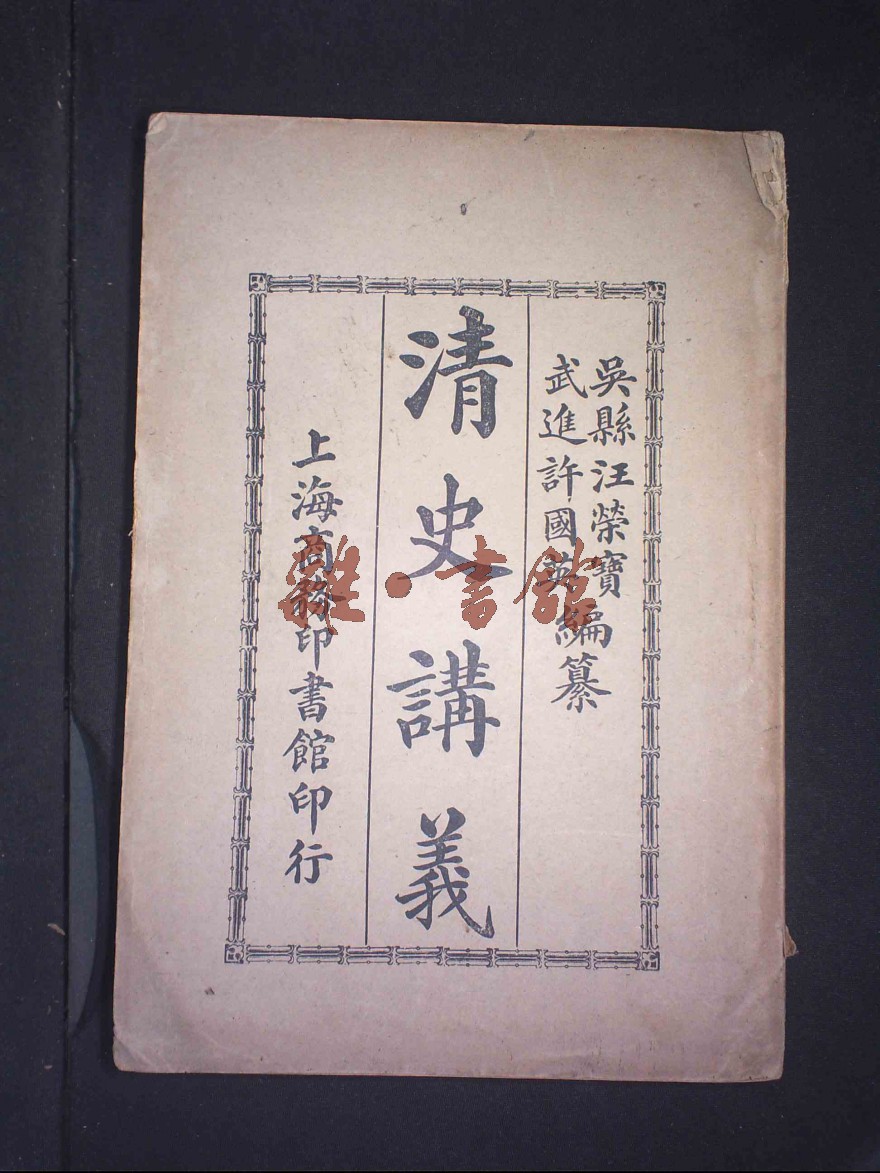 吳縣汪榮寶
武進許國英
編纂
清史講義
上海商務印書館印行
雜·書館